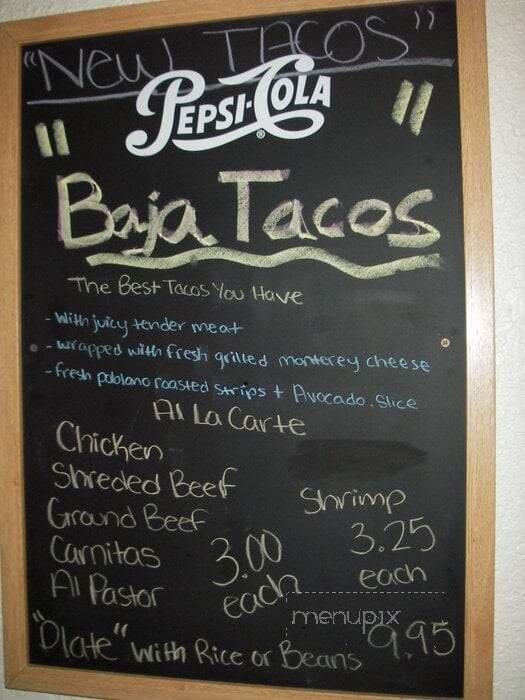 "New TACOS"
PEPSI-COLA
" Baja Tacos "
The Best Tacos You Have
- With juicy tender meat
- wrapped with fresh grilled monterey cheese
- fresh pablano roasted strips + Avocado. Slice
Al La Carte
Chicken
Shreded Beef
Ground Beef
Carnitas
Al Pastor
3.00
each
Shrimp
3.25
each
menupix
"Plate" with Rice or Beans 9.95